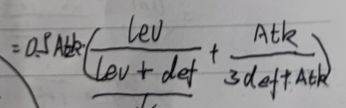 = 0.5 Atk · ( lev / (lev + def) + Atk / (3 def + Atk) )